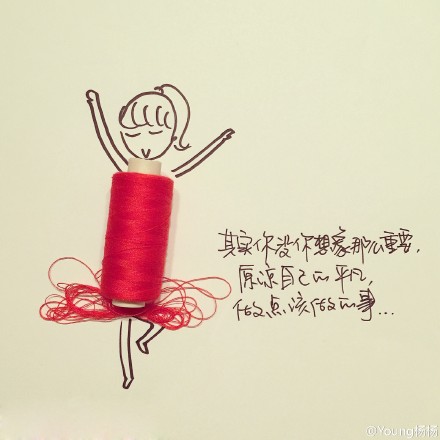 其实你没你想象那么重要,
原谅自己的平凡,
做点该做的事...
@Young杨杨